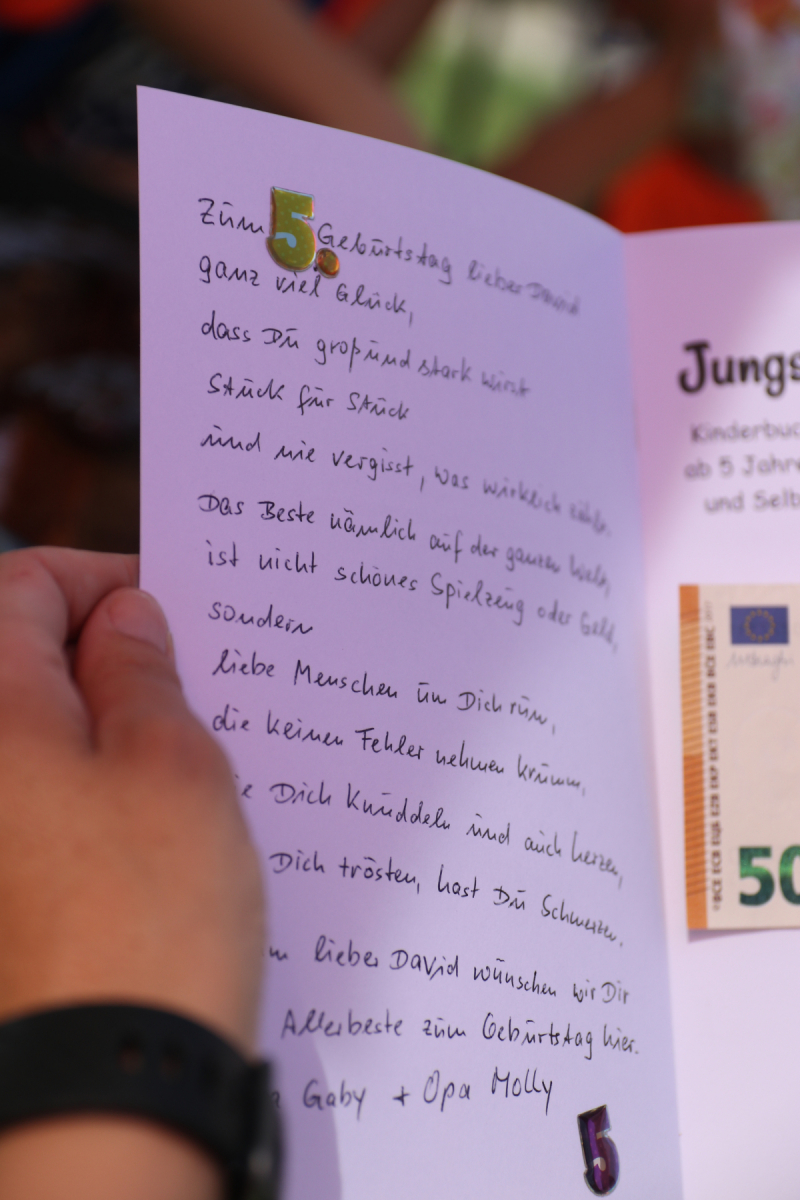 Zum 5. Geburtstag lieber David
ganz viel Glück,
dass Du groß und stark wirst
Stück für Stück
und nie vergisst, was wirklich zählt.
Das Beste nämlich auf der ganzen Welt,
ist nicht schönes Spielzeug oder Geld,
sondern
liebe Menschen um Dich rum,
die keinen Fehler nehmen krumm,
Dich knuddeln und auch herzen,
Dich trösten, hast Du Schmerzen.
lieber David wünschen wir Dir
Allerbeste zum Geburtstag hier.
Gaby + Opa Molly
5
Jungs
Kinderbuc
ab 5 Jahre
und Selb
50